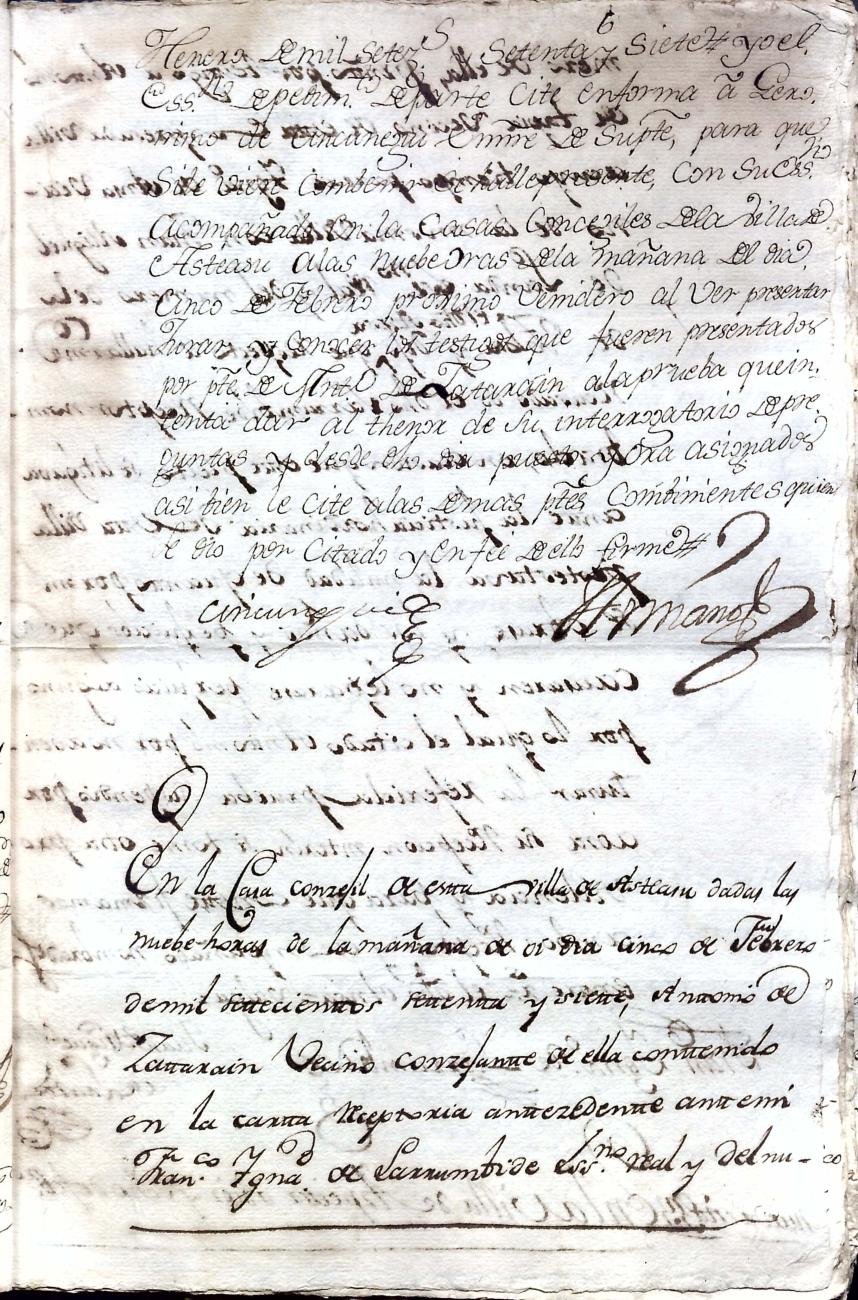 6
Henero de mil setez.s setenta y siete yo el
Ess.no de pedim.to de parte cite en forma á Gero.
nimo de Cincunegui Thnre de Supte, para que
si le viere combenir se halle presente, con su Ess.no
acompañado en la Casas Concexiles de la villa de
Asteasu a las nuebe oras de la mañana del dia
Cinco de Febrero proximo venidero al ver presentar
Jurar y Conocer los testigos que fueren presentados
por pte. de Antt.o de Zatarain a la prueba que in.
tenta dar al thenor de su interrogatorio de pre.
guntas y desde dho dia puesto y ora asignados
asi bien le cite a las demas ptes Combinientes quien
se dio por Citado y en feé de ello firmé
Cincunegui
Hermano
En la Casa conzejil de estta villa de Asteasu dadas las
nuebe horas de la mañana de oi dia cinco de Febrero
de mil settecienttos settentta y siette, Anttonio de
Zattarain Vecino conzejantte de ella conttenido
en la cartta Rezeptoria anttezedentte antte mi
Fran.co Ygna.o de Larrumbide ess.no real y del nu-co